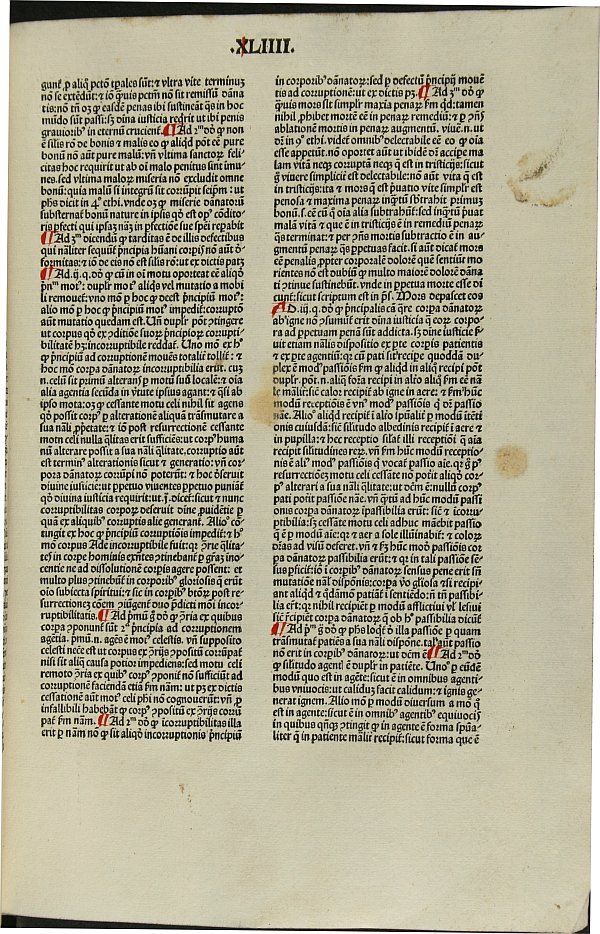 .XLIIII.
gunt᷑ ꝑ aliq̄ pctō tꝑales sūt: ⁊ vltra vite terminuȝ
nō se extēdūt: ⁊ iō q̄uis pctm̄ nō sit remissū dāna
tis: nō tn̄ oȝ ꝙ easdē penas ibi sustineāt q̄s in hoc
mūdo sūt passi: sȝ diīna iusticia req̄rit ut ibi penis
grauiorib⁹ in eternū crucient᷑. Ad 2ᵐ dōꝫ ꝙ non
ē silis rō de bonis ⁊ malis eo ꝙ aliqd pōt eē pure
bonū nō aūt pure malū: vn̄ vltima sanctoꝝ feli
citas hoc requirit ut ab oī malo penitus sint imu⸗
nes. sed vltima maloꝝ miseria nō excludit omne
bonū: quia malū si integrū sit corrūpit seip̄m: ut
ph̄s dicit in 4º ethi. vnde oȝ ꝙ miserie dānatoꝝ
substernat᷑ bonū nature in ipsis qd̄ est op⁹ cōdito⸗
ris pfecti qui ipsaȝ nām in pfectiōe sue spēi repabit
Ad 3ᵐ dicendū ꝙ tarditas ē de illis defectibus
qui nāliter sequunt᷑ pncipia hūani corpis nō aūt d⸗
formitas: ⁊ iō de eis nō est silis rō: ut ex dictis patȝ
Ad .ij. q̄. dōꝫ ꝙ cū in oī motu oporteat eē aliqd̄
pn̄ mot⁹: duplr̄ mot⁹ aliq̄s vel mutatio a mobi
li remouet᷑: vno mō ꝑ hoc ꝙ deest pncipiū mot⁹:
alio mō ꝑ hoc ꝙ pncipiū mot⁹ impedit᷑: corruptō
aūt mutatio quedam est. Vn̄ duplr̄ pōt ꝯtingere
ut corpus qd̄ ex ꝯditiōe suoꝝ pncipioꝝ corrupti⸗
bilitatē hȝ: incorruptibile reddat᷑. Uno mō ex h⁹
ꝙ pncipiū ad corruptionē mouēs totalit᷑ tollit᷑: ⁊
hoc mō corpa dānatoꝝ incorruptibilia erūt. cuȝ
n. celū sit primū alterans ꝑ motū suū localē: ⁊ oīa
alia agentia secūda in v̄tute ipsius agant: ⁊ q̄si ab
ipso mota: oȝ ꝙ cessante motu celi nihil sit agens
qd̄ possit corp⁹ ꝑ alterationē aliquā trāsmutare a
sua nāli ꝓpetate: ⁊ iō post resurrectionē cessante
motu celi nulla q̄litas erit sufficiēs: ut corp⁹ huma
nū alterare possit a sua nāli q̄litate. corruptio aūt
est termin⁹ alterationis sicut ⁊ generatio: vn̄ cor⸗
pora dānatoꝝ corrūpi nō poterūt: ⁊ hoc d̄seruit
diuine iusticie: ut ppetuo viuentes ppetuo puniat᷑
qd̄ diuina iusticia requirit: ut .j. dicet᷑: sicut ⁊ nunc
corruptibilitas corporꝝ deseruit diīne ꝓuidētie ꝑ
quā ex aliquib⁹ corruptis alie generant᷑. Alio⁹ cō⸗
tingit ex hoc ꝙ pncipiū corruptiōis impedit᷑: ⁊ h⁹
mō corpus Ade incorruptibile fuit: qꝛ ꝯrie q̄lita⸗
tes in corpe hominis exn̄tes ꝯtinebant᷑ ꝑ grāȝ ino⸗
centie ne ad dissolutionē corpis agere possent: et
multo plus ꝯtinebunt᷑ in corporib⁹ gloriosis q̄ erūt
oīo subiecta spiritui: ⁊ sic in corpib⁹ btōꝝ post re⸗
surrectionēȝ cōem ꝯiūgent᷑ duo p̄dicti mōi incor⸗
ruptibilitatis. Ad pmū ḡ dōꝫ ꝙ ꝯria ex quibus
corpa ꝯponunt᷑ sūt 2ª pncipia ad corruptionem
agētia. pmū .n. agēs ē mot⁹ celestis. vn̄ supposito
celesti nēcē est ut corpus ex ꝯrijs ꝯpositū corrūpat᷑
nisi sit aliq̄ causa potior impediens: sed motu celi
remoto ꝯria ex quib⁹ corp⁹ ꝯponit᷑ nō sufficiūt ad
corruptionē faciendā etiā fm̄ nām: ut pȝ ex dictis
cessationē aūt mot⁹ celi phi nō cognouerūt: vn̄ ꝓ
infallibili habebāt ꝙ corp⁹ ꝯpositū ex ꝯrijs corrū
pat᷑ fm̄ nām. Ad 2ᵐ dōꝫ ꝙ īcorruptibilitas illa
erit ꝑ nām nō ꝙ sit aliqd̄ incorruptionis pncipiū
in corporib⁹ dānatoꝝ: sed ꝑ defectū pncipij mouē
tis ad corruptionē: ut ex dictis pȝ. Ad 3ᵐ dōꝫ ꝙ
q̄uis mors sit simplr̄ maxīa penaꝝ fm̄ qd̄: tamen
nihil ꝓhibet mortē eē in penaꝝ remediū: ⁊ ꝑ ꝯn̄s
ablationē mortis in penaꝝ augmentū. viue .n. ut
dr̄ in 9º ethi. videt᷑ omnib⁹ delectabile eē eo ꝙ oīa
esse appetūt. nō oportet aūt ut ibidē dr̄ accipe ma
lam vitā neqȝ corruptā neqȝ q̄ est in tristicijs: sicut
ḡ viuere simplicit᷑ est delectabile: nō aūt vita q̄ est
in tristicijs: ita ⁊ mors q̄ est puatio vite simplr̄ est
penosa ⁊ maxima penaꝝ inq̄tū sbtrahit primuȝ
bonū .s. eē cū q̄ oīa alia subtrahūt᷑: sed inq̄tū puat
malā vitā ⁊ que ē in tristicijs ē in remediū penaꝝ
q̄s terminat: ⁊ per ꝯn̄s mortis subtractio ē in au⸗
gmentū penaꝝ q̄s ppetuas facit. si aūt dicat᷑ mors
eē penalis ꝓpter corporalē dolorē quē sentiūt mo
rientes nō est dubiū ꝙ multo maiorē dolorē dāna
ti ꝯtinue sustinebūt. vnde in ppetua morte esse di
cunt᷑: sicut scriptum est in ps̄. Mors depascet eos
AD .iij. q̄. dōꝫ ꝙ pncipalis cā q̄re corpa dānatoꝝ
ab igne nō ꝯsumēt᷑ erit diīna iusticia q̄ eoꝝ corpo⸗
ra ad ppetuam penā sūt addicta. sȝ diīne iusticie s̄⸗
uit etiam nālis dispositio ex pte corpis patientis
⁊ ex pte agentiū: qꝛ cū pati sit recipe quoddā du⸗
plex ē mod⁹ passiōis fm̄ ꝙ aliqd in aliq̄ recipi pōt
duplr̄. pōt .n. aliq̄ forā recipi in alio aliq̄ fm̄ eē nā
le māli: sic calor recipit᷑ ab igne in aere: ⁊ fm̄ hūc
modū receptiōis ē vn⁹ mod⁹ passiōis q̄ dr̄ passio
nāe. Alio⁹ aliqd̄ recipit᷑ ī alio spūalit᷑ ꝑ modū ītēti
onis cuiusdā: sic silitudo albedinis recipit᷑ ī aere ⁊
in pupilla: ⁊ hec receptio silat᷑ illi receptiōi q̄ aīa
recipit silitudines rerꝝ. vn̄ fm̄ hūc modū receptio⸗
nis ē ali⁹ mod⁹ passiōis q̄ vocat᷑ passio aīe. qꝛ ḡ p⁹
resurrectionēȝ motu celi cessāte nō poīt aliqd̄ cor⸗
p⁹ alterari a sua nāli q̄litate: ut dcm̄ ē: nullū corp⁹
pati poīt passiōe nāe. vn̄ q̄tū ad hūc modū passi
onis corpa dānatoꝝ īpassibilia erūt: sic ⁊ īcorru⸗
ptibilia: sȝ cessāte motu celi adhuc māebit passio
q̄ ē ꝑ modū aīe: qꝛ ⁊ aer a sole illuīabit᷑: ⁊ coloꝝ
d̄ias ad visū deseret. vn̄ ⁊ fȝ hūc modū passiōis cor
pa dānatoꝝ passibilia erūt: ⁊ qꝛ in tali passiōe sē⸗
sus pficit᷑: iō ī corpib⁹ dānatoꝝ sensus pene erit sn̄
mutatiōe nālis disponis: corpa v̄o gl̄iosa ⁊ si recipi
ant aliqd ⁊ qdāmō patiāt᷑ ī sentiēdo: nō tn̄ passibi⸗
lia erūt: qꝛ nihil recipiēt ꝑ modū afflictiui vl̄ lesiui
sic ꝛecipiēt corpa dānatoꝝ q̄ ob h⁹ passibilia dicūt᷑
Ad pmū ḡ dōꝫ ꝙ ph̄s loqt᷑ d̄ illa passiōe ꝑ quam
trāsmutat᷑ patiēs a sua nāli dispōne. tal⁹ aūt passio
nō erit in corpib⁹ dānatoꝝ: ut dcm̄ ē. Ad 2ᵐ dōꝫ
ꝙ silitudo agent᷑ ē duplr̄ in patiēte. Uno⁹ ꝑ eūdē
modū quo est in agēte: sicut ē in omnibus agenti⸗
bus vniuocis: ut calidum facit calidum: ⁊ ignis ge⸗
nerat ignem. Alio mō ꝑ modū diuersum a mō q̄
est in agente: sicut ē in omib⁹ agentib⁹ equiuocis
in quibus q̄nqȝ ꝯtingit ꝙ in agente ē forma spūa⸗
liter q̄ in patiente mālit᷑ recipit᷑: sicut forma que ē